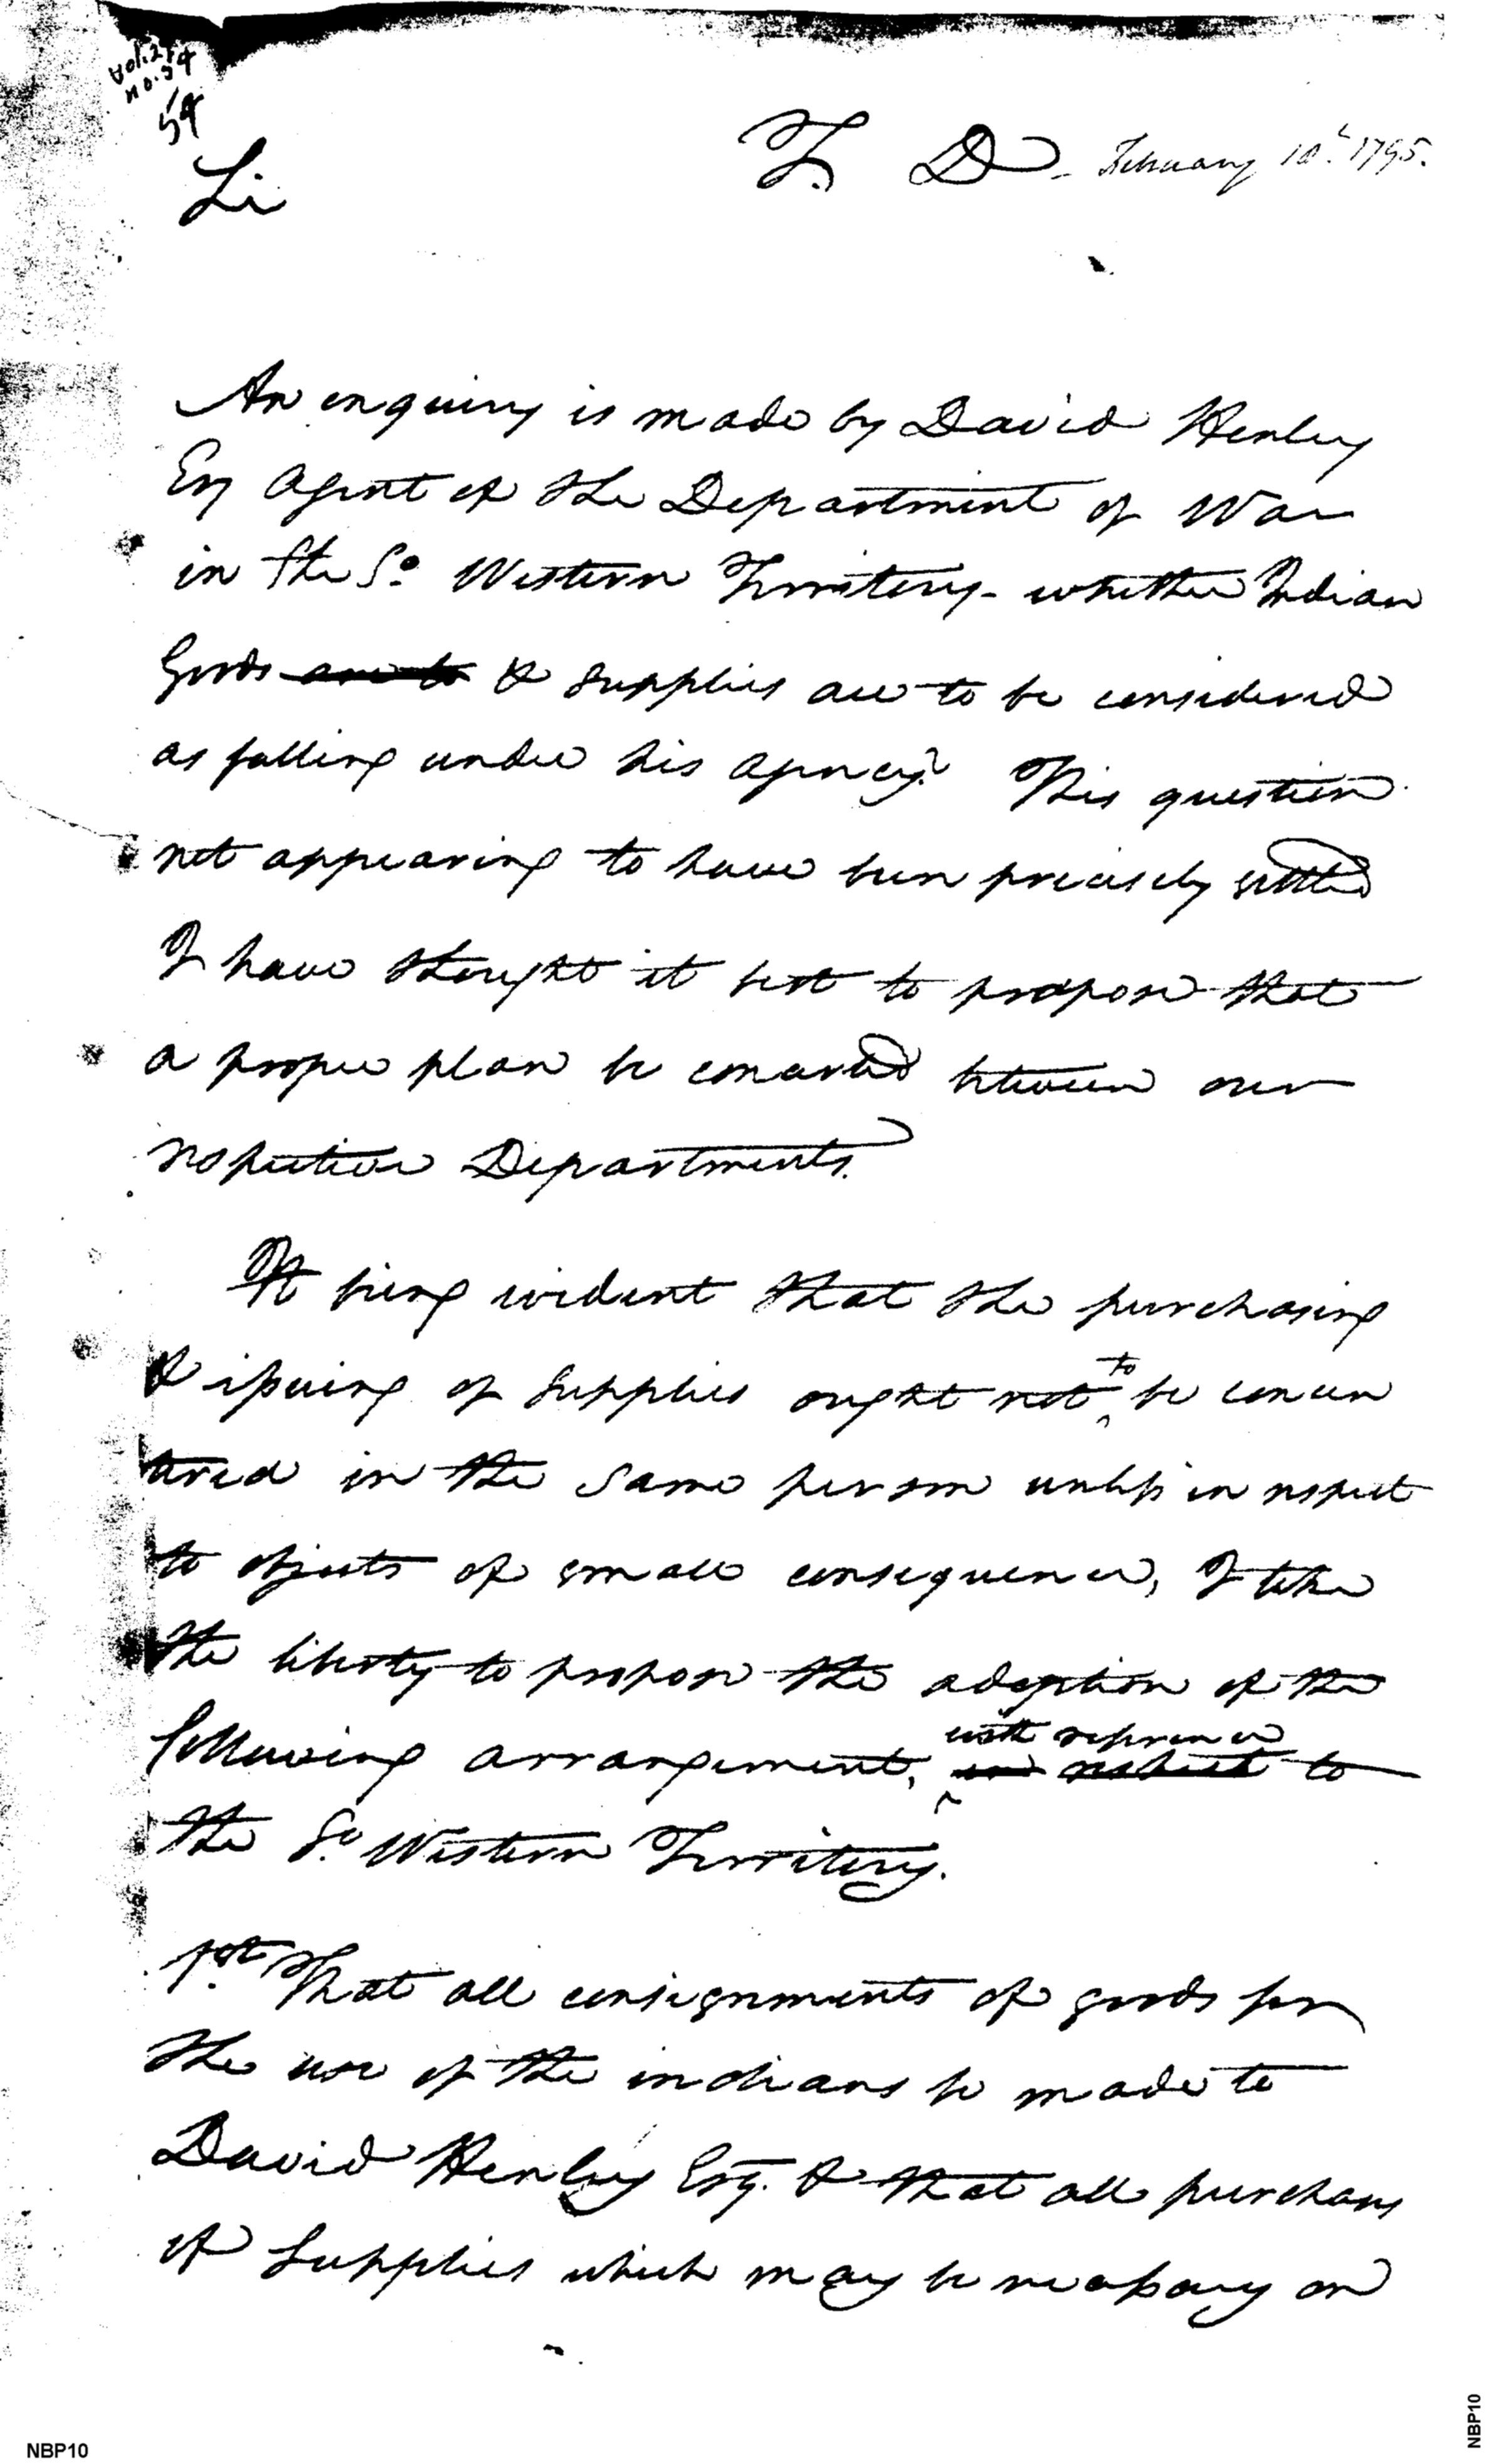 Vol. 21
No. 54
54
T. D. February 10th. 1795.
Sir
An enquiry is made by David Henley
Esq Agent of the Department of War
in the So. Western Territory - whether Indian
Goods are to & Supplies are to be considered
as falling under his agency? This question
not appearing to have been precisely settled
I have thought it best to propose that
a proper plan be concerted between our
respective Departments.
It being evident that the purchasing
& issuing of Supplies ought not to be concen
tred in the same person unless in respect
to objects of small consequence, I take
the liberty to propose the adoption of the
following arrangement, in respect with reference to
the So. Western Territory.
1st. That all consignments of goods for
the use of the indians be made to
David Henley Esq. & that all purchases
of Supplies which may be necessary on
NBP10
NBP10